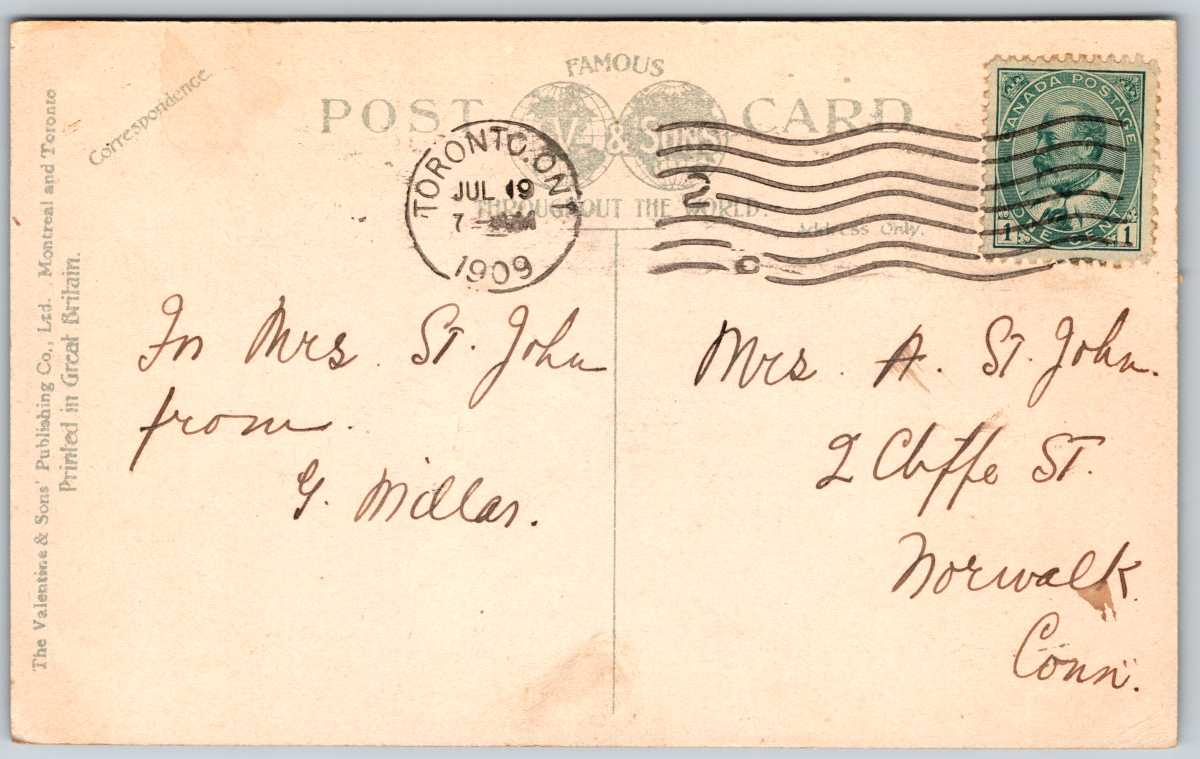 FAMOUS
POST CARD
V. & SONS
THROUGHOUT THE WORLD.
Correspondence.
Address Only.
TORONTO. ONT
JUL 19
7
1909
2
C
CANADA POSTAGE
1 ONE CENT 1
The Valentine & Sons' Publishing Co., Ltd. Montreal and Toronto
Printed in Great Britain.
For Mrs. St. John
from.
G. Millar.
Mrs. A. St. John.
2 Cliffe St.
Norwalk.
Conn.